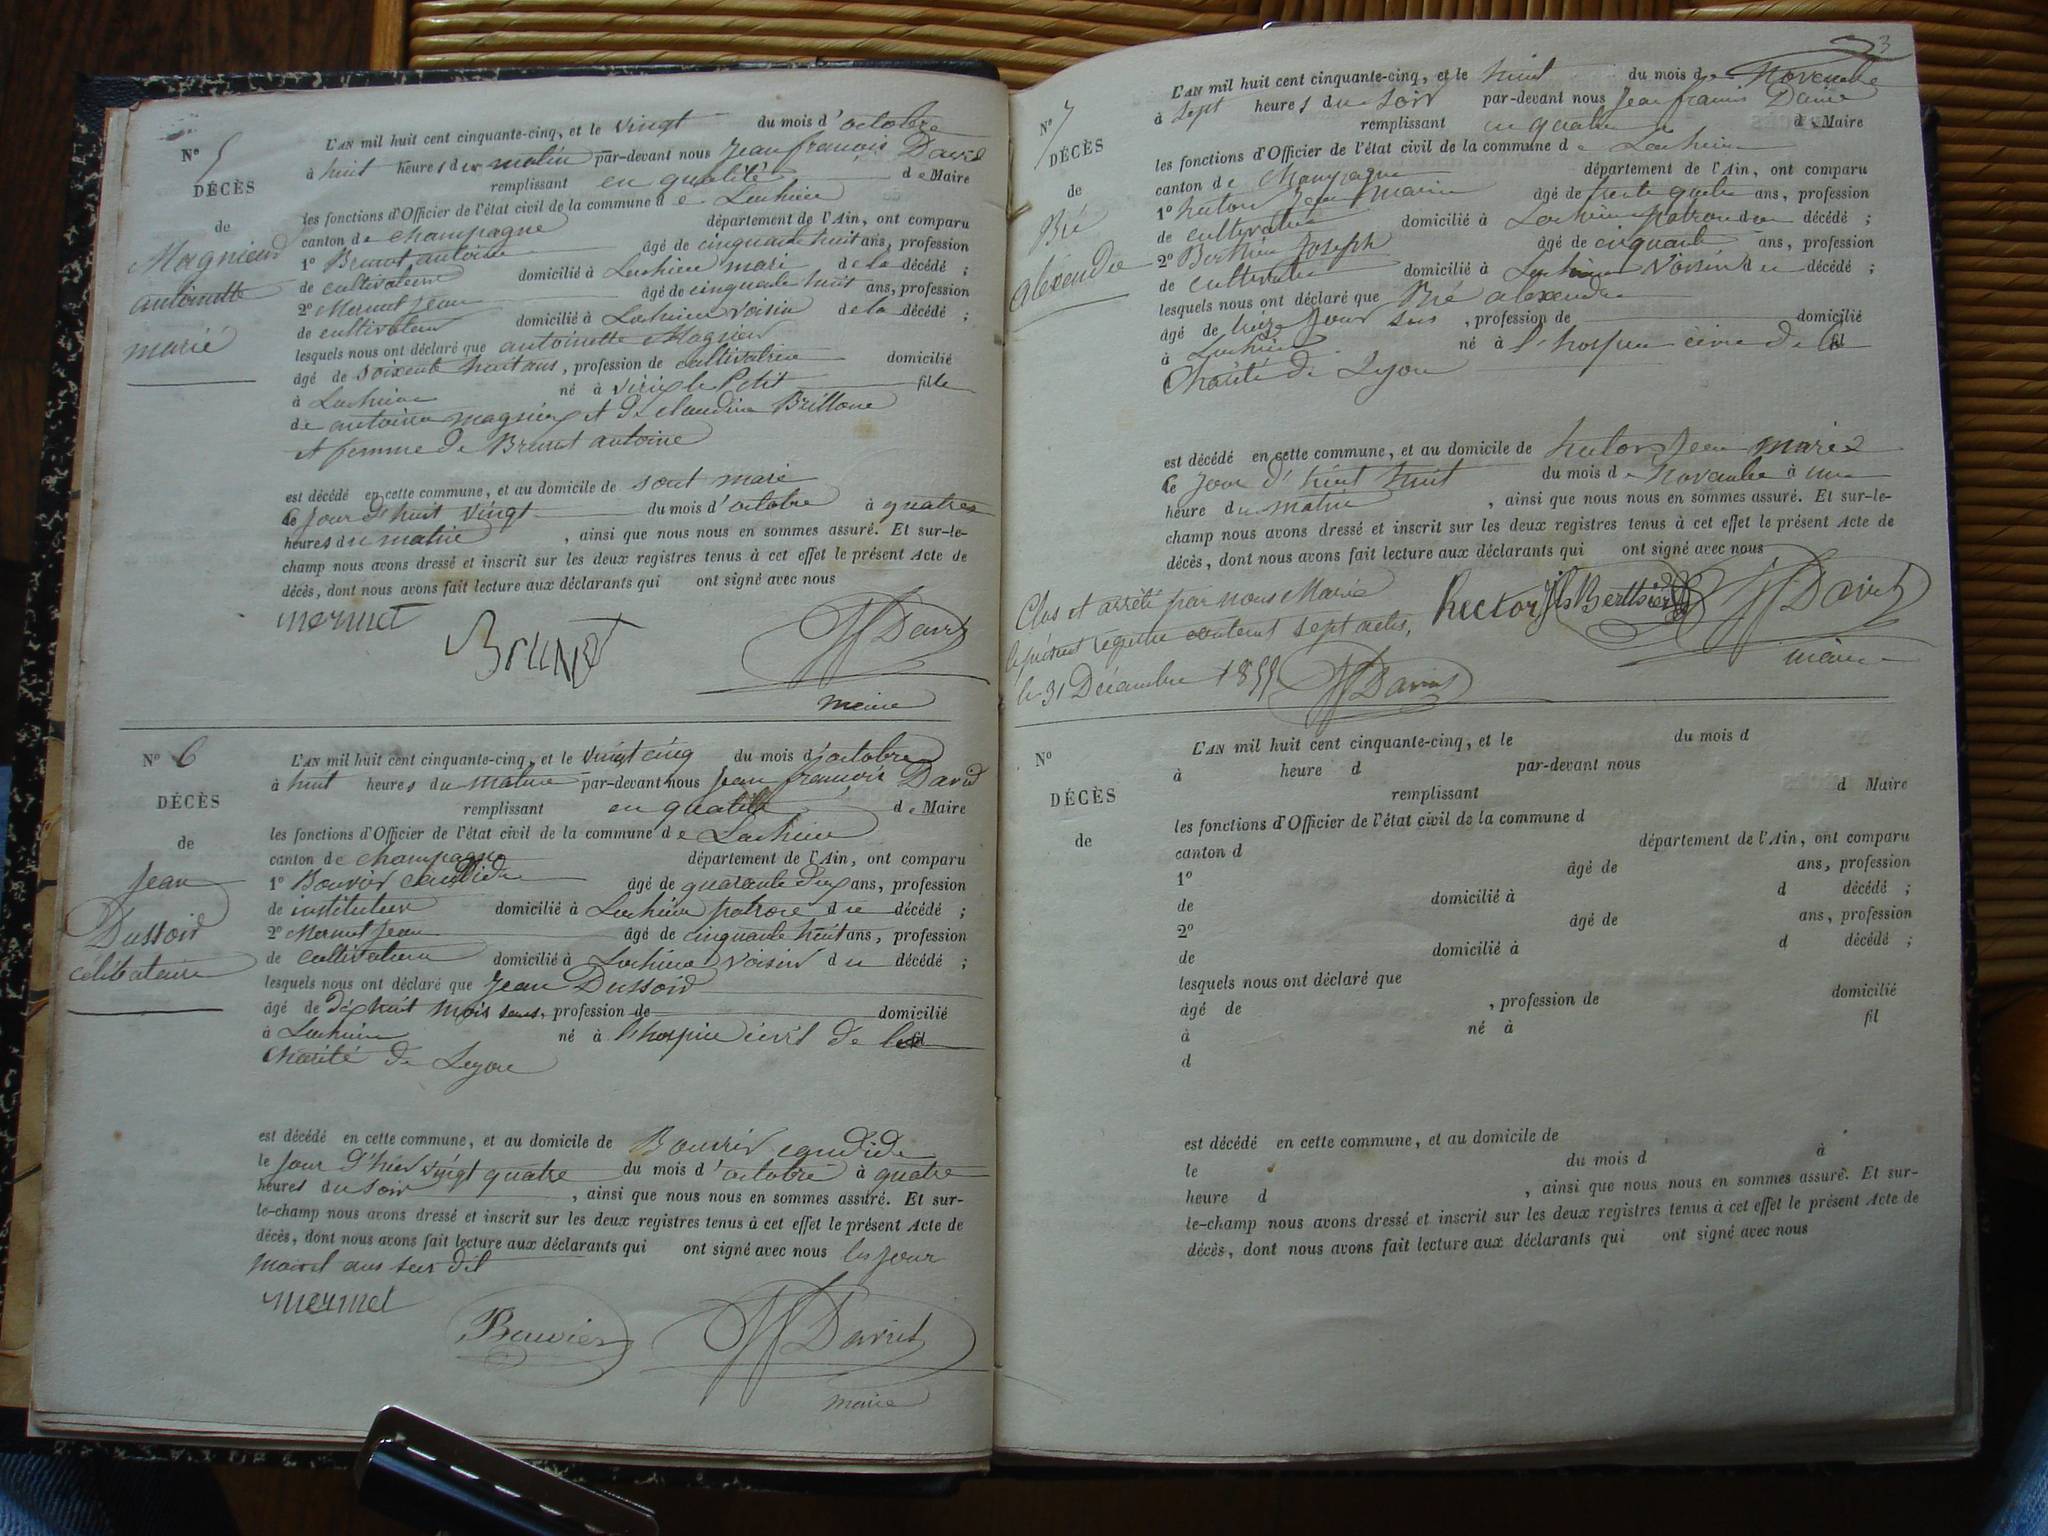 N° 5
DÉCÈS
de
Magnieux
antoinette
marié
L'AN mil huit cent cinquante-cinq, et le vingt du mois d'octobre
à huit heures du matin par-devant nous Jean francois David
remplissant en qualité de Maire
les fonctions d'Officier de l'état civil de la commune de Lochieu
canton de champagne département de l'Ain, ont comparu
1° Brunet antoine âgé de cinquante huit ans, profession
de cultivateur domicilié à Lochieu mari de la décédé ;
2° Mermet Jean âgé de cinquante huit ans, profession
de cultivateur domicilié à Lochieu voisin de la décédé ;
lesquels nous ont déclaré que antoinette Magnieu
âgé de soixente huit ans, profession de cultivatrice domicilié
à Lochieu né à virieu le Petit fille
de antoine magnieu et de claudine Brillone
et femme de Brunet antoine
est décédé en cette commune, et au domicile de sont mari
le jour d'huit vingt du mois d'octobre à quatres
heures du matin, ainsi que nous nous en sommes assuré. Et sur-le-
champ nous avons dressé et inscrit sur les deux registres tenus à cet effet le présent Acte de
décès, dont nous avons fait lecture aux déclarants qui ont signé avec nous
mermet Brunet David
maire
N° 6
DÉCÈS
de
Jean
Dussoid
célibataire
L'AN mil huit cent cinquante-cinq, et le vingt cinq du mois d'octobre
à huit heures du matin par-devant nous Jean françois David
remplissant en qualité de Maire
les fonctions d'Officier de l'état civil de la commune de Lochieu
canton de champagne département de l'Ain, ont comparu
1° Bouvier candide âgé de quarante dix ans, profession
de instituteur domicilié à Lochieu patrone du décédé ;
2° Mermet Jean âgé de cinquante huit ans, profession
de cultivateur domicilié à Lochieu voisin du décédé ;
lesquels nous ont déclaré que Jean Dussoid
âgé de dix huit mois sans, profession de domicilié
à Lochieu né à l'hospice civil de la fil
Charité de Lyon
est décédé en cette commune, et au domicile de Bouvier candide
le jour d'hier vingt quatre du mois d'octobre à quatre
heures du soir, ainsi que nous nous en sommes assuré. Et sur-
le-champ nous avons dressé et inscrit sur les deux registres tenus à cet effet le présent Acte de
décès, dont nous avons fait lecture aux déclarants qui ont signé avec nous les jour
mois et ans sus dit
mermet Bouvier David
maire
3
N° 7
DÉCÈS
de
Bié
aléxendre
L'AN mil huit cent cinquante-cinq, et le huit du mois de Novembre
à sept heures du soir par-devant nous Jean francois David
remplissant en qualité de Maire
les fonctions d'Officier de l'état civil de la commune de Lochieu
canton de champagne département de l'Ain, ont comparu
1° hector Jean Marie âgé de trente quatre ans, profession
de cultivateur domicilié à Lochieu patron du décédé ;
2° Berthier Joseph âgé de cinquante ans, profession
de cultivateur domicilié à Lochieu voisin du décédé ;
lesquels nous ont déclaré que Bié alexendre
âgé de treize jour sans, profession de domicilié
à Lochieu né à l'hospice civil de la fil
Charité de Lyon
est décédé en cette commune, et au domicile de hector Jean marie
le jour d'huit huit du mois de Novembre à une
heure du matin, ainsi que nous nous en sommes assuré. Et sur-le-
champ nous avons dressé et inscrit sur les deux registres tenus à cet effet le présent Acte de
décès, dont nous avons fait lecture aux déclarants qui ont signé avec nous
hector Berthier David
maire
Clos et arrêté par nous Maire
le présent registre contenant sept actes,
le 31 Décembre 1855 David
N°
DÉCÈS
de
L'AN mil huit cent cinquante-cinq, et le du mois d
à heure d par-devant nous
remplissant d Maire
les fonctions d'Officier de l'état civil de la commune d
canton d département de l'Ain, ont comparu
1° âgé de ans, profession
de domicilié à d décédé ;
2° âgé de ans, profession
de domicilié à d décédé ;
lesquels nous ont déclaré que
âgé de , profession de domicilié
à né à fil
d
est décédé en cette commune, et au domicile de
le du mois d à
heure d , ainsi que nous nous en sommes assuré. Et sur-
le-champ nous avons dressé et inscrit sur les deux registres tenus à cet effet le présent Acte de
décès, dont nous avons fait lecture aux déclarants qui ont signé avec nous